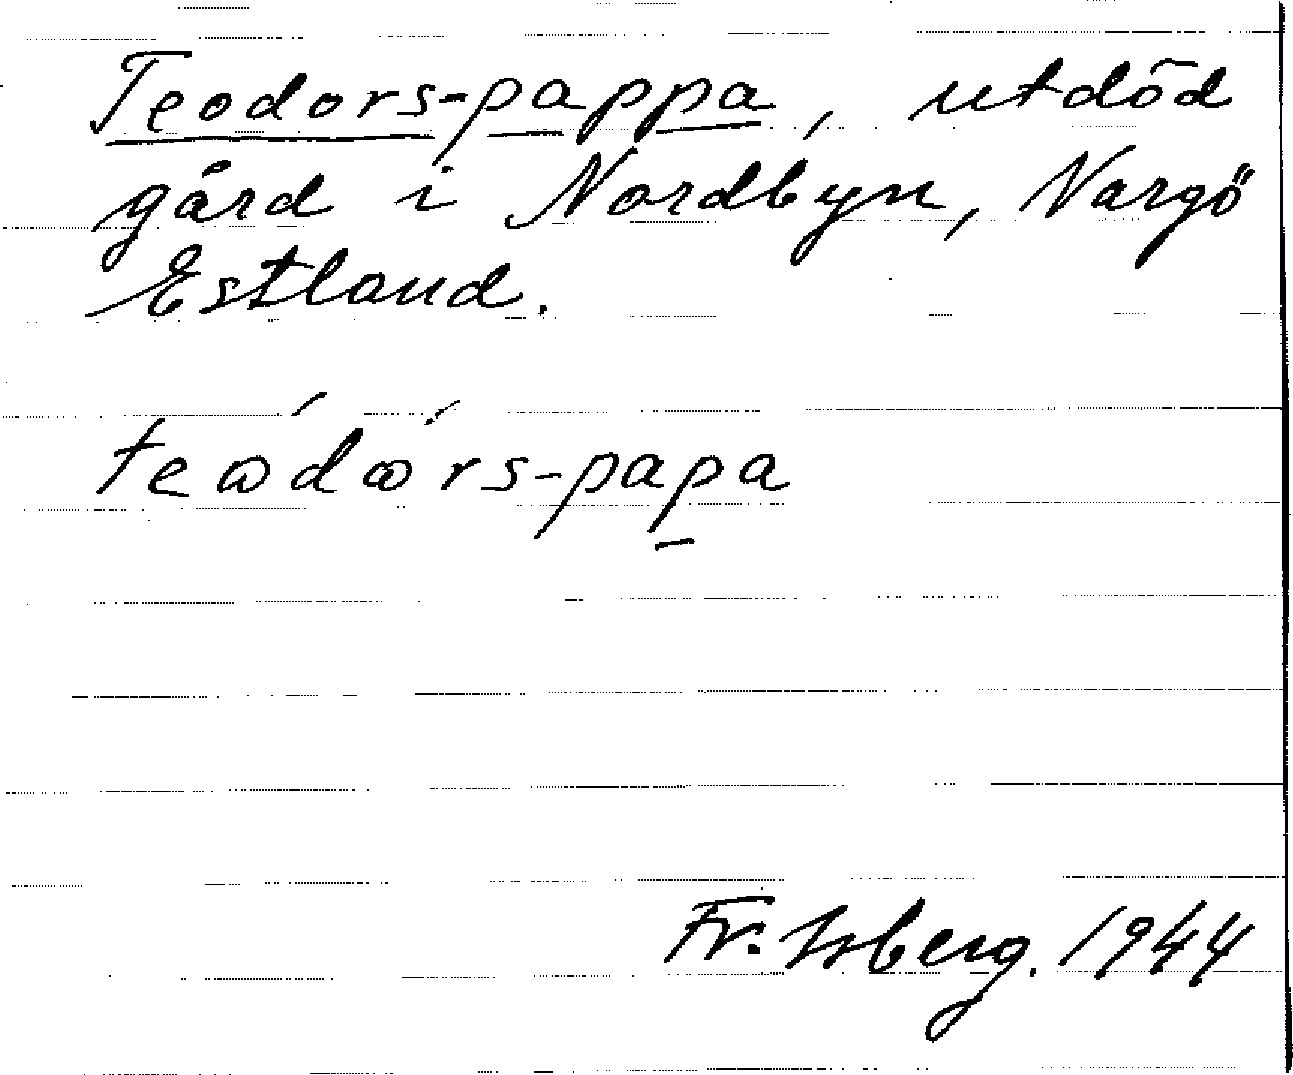 Teodors-pappa, utdöd
gård i Nordbyn, Nargö
Estland.
teωdωrs-papa
Fr. Isberg. 1944